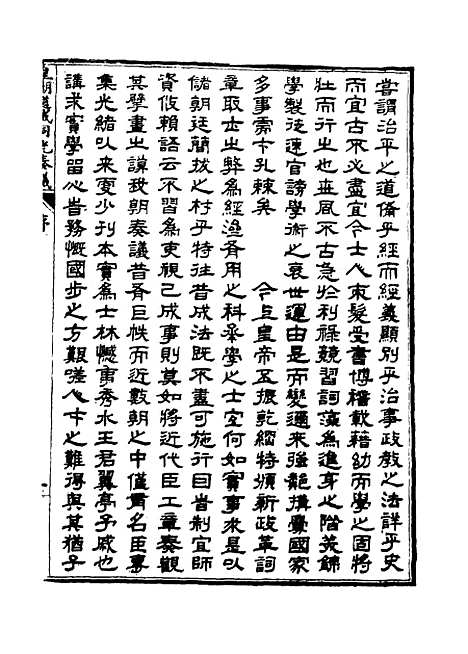 嘗謂治平之道備乎經而經義顯別乎治事政教之法詳乎史
而宜古不必盡宜今士人束髮受書博稽載籍幼而學之固將
壯而行之也世風不古急於利祿競習詞藻為進身之階美錦
學製徒速官謗學術之衰世運由是而變邇來強鄰搆釁國家
多事需才孔棘矣　今上皇帝丕振乾綱特頒新政革詞
章取士之弊為經有用之科承學之士宜何如實事求是以
儲朝廷簡拔之材乎特往昔成法既不盡可施行因時制宜師
資攸賴語云不習為吏視己成事則莫如將近代臣工章奏觀
其擘畫之謨我朝奏議昔有巨帙而近數朝之中僅有名臣專
集光緒以來更少刊本實為士林憾事秀水王君翼亭予戚也
講求實學留心時務慨國步之方艱嗟人才之難得與其猶子
皇朝道咸同光奏議　序　一